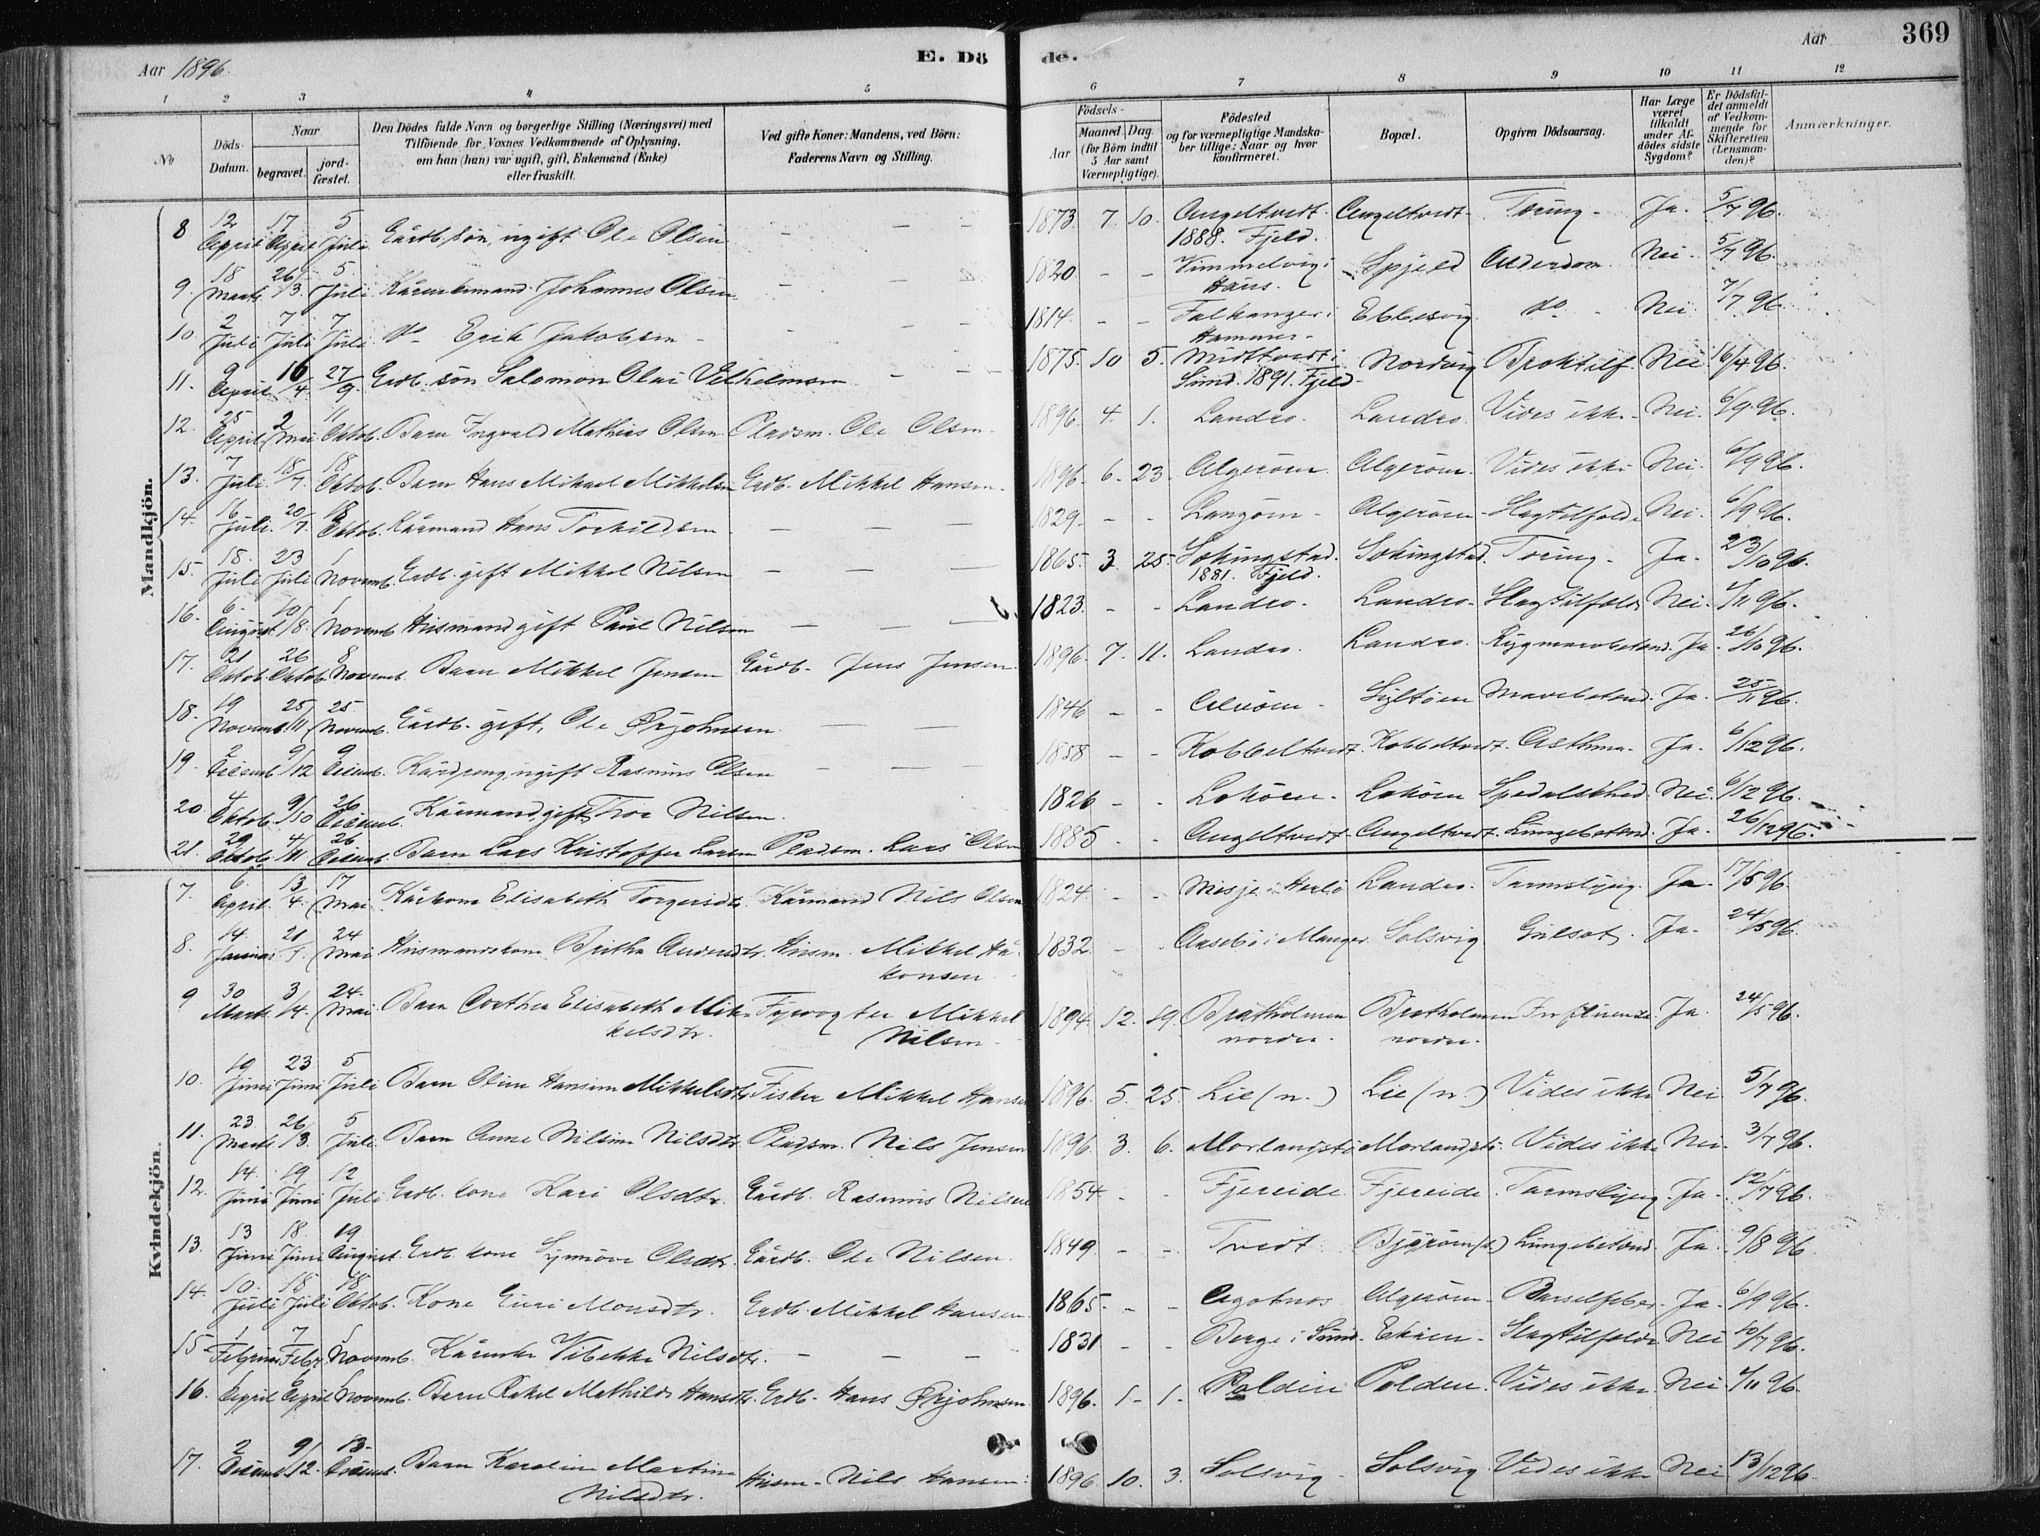 Aar 1896.
E. Dö
de.
Aar
369
1 2 3 4 5 6 7 8 9 10 11 12
No
Döds-Datum.
Naar
begravet.
jord-fæstet.
Den Dödes fulde Navn og borgerlige Stilling (Næringsvei) med
Tilföiende for Voxnes Vedkommende af Oplysning,
om han (hun) var ugift, gift, Enkemand (Enke)
eller fraskilt.
Ved gifte Koner: Mandens, ved Börn:
Faderens Navn og Stilling.
Födsels-
Aar
Maaned. Dag.
(for Börn indtil
5 Aar samt
Værnepligtige).
Födested
og for værnepligtige Mandska-
ber tillige: Naar og hvor
konfirmeret.
Bopæl.
Opgiven Dödsaarsag.
Har Læge
været
tilkaldt
under Af-
dödes sidste
Sygdom?
Er Dödsfal-
det anmeldt
af Vedkom-
mende for
Skifteretten
(Lensman-
den)?
Anmærkninger.
Mandkjön.
8 12 April 17 April 5 Juli Gårdb. søn, ugift Ole Olsen — — — 1873 7. 10. Angeltvedt. 1888. Fjeld. Angeltvedt Tæring Ja. 5/7 96.
9. 18 Marts 26/3. 5 Juli Kårenkemand Johannes Olsen — — — 1820 - - Vimmelvig i Haus. Spjeld Alderdom Nei. 5/7 96.
10 2 Juli 7 Juli 7 Juli do Erik Jakobsen — — — 1814. - - Falkanger i Hammer Ebbesvig do Nei. 7/7 96.
11. 9 April 16/4. 27/9. Grdb. søn Salomon Olai Vilhelmsen — — 1875. 10 5. Midttvedt i Sund. 1891. Fjeld Nordvig Nei 16/4 96.
12. 25 April 2 Mai 11 Oktob. Barn Ingvald Mathias Olsen Pladsm. Ole Olsen. 1896. 4. 1. Landro. Landro. Vides ikke Nei. 6/9 96.
13. 7 Juli. 18/7. 18 Oktob. Barn Hans Mikael Mikkelsen Grdb. Mikkel Hansen. 1896. 6. 23. Algerøen. Algerøen. Vides ikke Nei. 6/9 96.
14. 16 Juli. 20/7. 18 Oktob. Kårmand Hans Torkildsen — — — 1829. - - Langøen Algerøen Slagtilfælde Nei. 6/9 96.
15. 18. Juli 23 Juli 1 Novemb. Grdb. gift Mikkel Nilsen — — — 1865. 3. 25. Sekingstad. 1881. Fjeld. Sekingstad. Tæring Ja. 23/10 96.
16. 6. August 10/8. 1 Novemb Husmand gift Paul Nilsen — — — 1823. - - Landro. Landro. Slagtilfælde Nei. 1/11 96.
17. 21 Oktob. 26 Oktob. 8 Novemb. Barn Mikkel Jensen Gårdb. Jens Jensen. 1896. 7. 11. Landro. Landro. Ja. 26/10 96.
18. 19 Novemb 25/11 25. Novemb. Gårdb. gift, Ole Ørjohnsen. — — 1846 - - Alvøen Syltøen Mavebetænd. Ja. 25/11 96.
19. 2 Decemb 9/12 9 Decemb. Kårdreng ugift Rasmus Olsen — — — 1858 - - Kobbeltvedt. Kobbeltvedt. Asthma. Ja. 6/12 96.
20 4 Oktob. 9/10 26 Decemb. Kårmand, gift Thor Nilsen. 1826 - - Lokøen. Lokøen Spedalskhed. Nei. 6/12 96.
21. 29 Oktob. 4/11 26 Decemb. Barn Lars Kristoffer Larsen Pladsm. Lars Olsen 1885 - - Angeltvedt. Angeltvedt. Lungebetænd. Ja. 26/12 96.
Kvindekjön.
7. 6. April. 13/4. 17 Mai. Kårkone Elisabeth Torgersdtr. Kårmand Nils Olsen 1824. - - Misje i Herlø Landro. Tarmslyng. Ja. 17/5 96.
8. 14. Januar 21/1. 24 Mai Husmandskone Britha Andersdtr. Husm. Mikkel Håkonsen 1832. - - Aasebø i Manger. Solsvig Gulsot. Ja. 24/5 96.
9 30 Marts. 3/4. 24. Mai Barn Dorthea Elisabeth Mikkelsdtr. Mikkel Nilsen. 1894. 12. 19. Bratholmen nordre. Bratholmen nordre. Influenza Ja. 24/5 96.
10. 19 Juni 23 Juni 5 Juli Barn Oline Hansine Mikkelsdtr Fisker Mikkel Hansen 1896. 5. 25. Lie (n.) Lie (n.) Vides ikke Nei 5/7 96.
11. 23. Marts 26/3. 5 Juli. Barn Anne Nilsine Nilsdtr. Pladsm. Nils Jensen 1896. 3. 6. Morlandstø Morlandstø. Vides ikke Nei. 3/7 96.
12. 14. Juni 19 Juni 12 Juli Grdb. kone Kari Olsdtr. Gårdb. Rasmus Nilsen 1854. - - Fjereide. Fjereide. Tarmslyng. Ja. 12/7 96.
13. 13 Juni 18. Juni 19 August Grdb. kone Synnøve Olsdtr. Gårdb. Ole Nilsen. 1849 - - Tvedt Bjørøen (s.) Lungebetænd. Ja. 9/8 96.
14. 10. Juli 18 Juli 18 Oktob. Kone Guri Monsdtr. Grdb. Mikkel Hansen. 1865. - - Agotnes Algerøen. Barselfeber. Ja. 6/9 96.
15. 1 Februar 7 Febr. 1 Novemb. Kårenke Vibekke Nilsdtr. — — — 1831 - - Berge i Sund. Ekren. Slagtilfælde Nei
16. April April Novemb. Barn Rakel Mathilde Hansdtr. Grdb. Hans Ørjohnsen. 1896. 1. 1. Polden Polden. Vides ikke Nei 1/11 96.
17. 2 Decemb 9/12. 13. Decemb. Barn Karoline Martine Nilsdtr. Husm. Nils Hansen 1896. 10. 3. Solsvig. Solsvig. Vides ikke Nei 13/12 96.